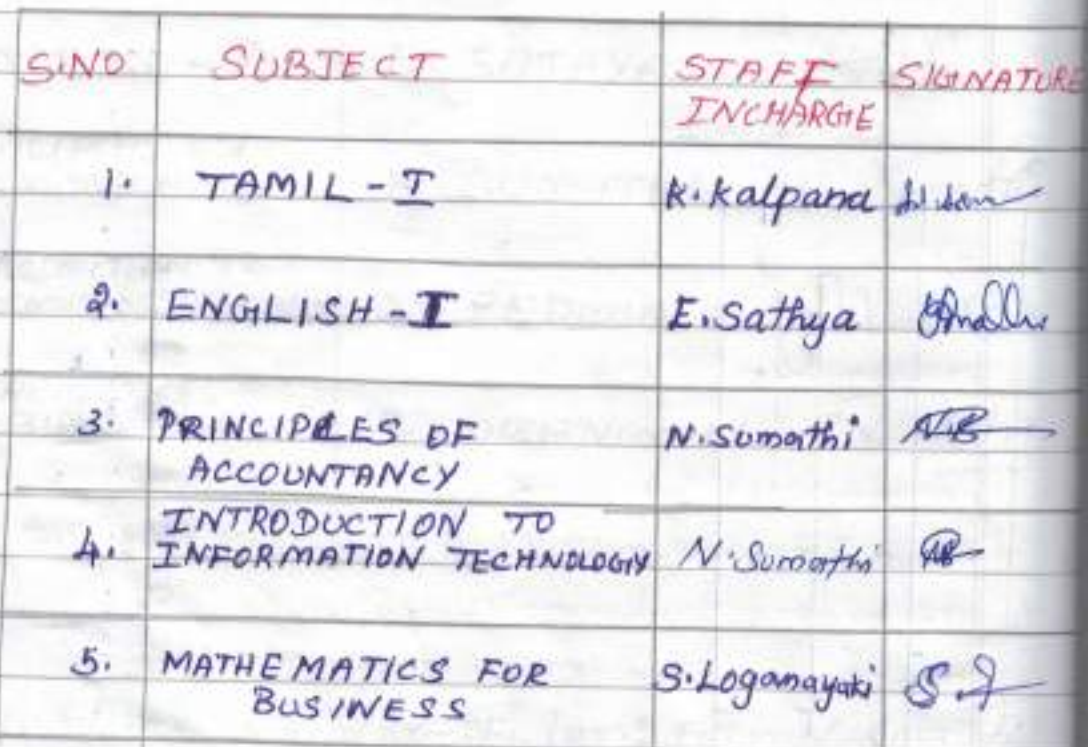 S.NO SUBJECT STAFF INCHARGE SIGNATURE
1. TAMIL - I K. Kalpana
2. ENGLISH - I E. Sathya
3. PRINCIPLES OF ACCOUNTANCY N. Sumathi
4. INTRODUCTION TO INFORMATION TECHNOLOGY N. Sumathi
5. MATHEMATICS FOR BUSINESS S. Loganayaki